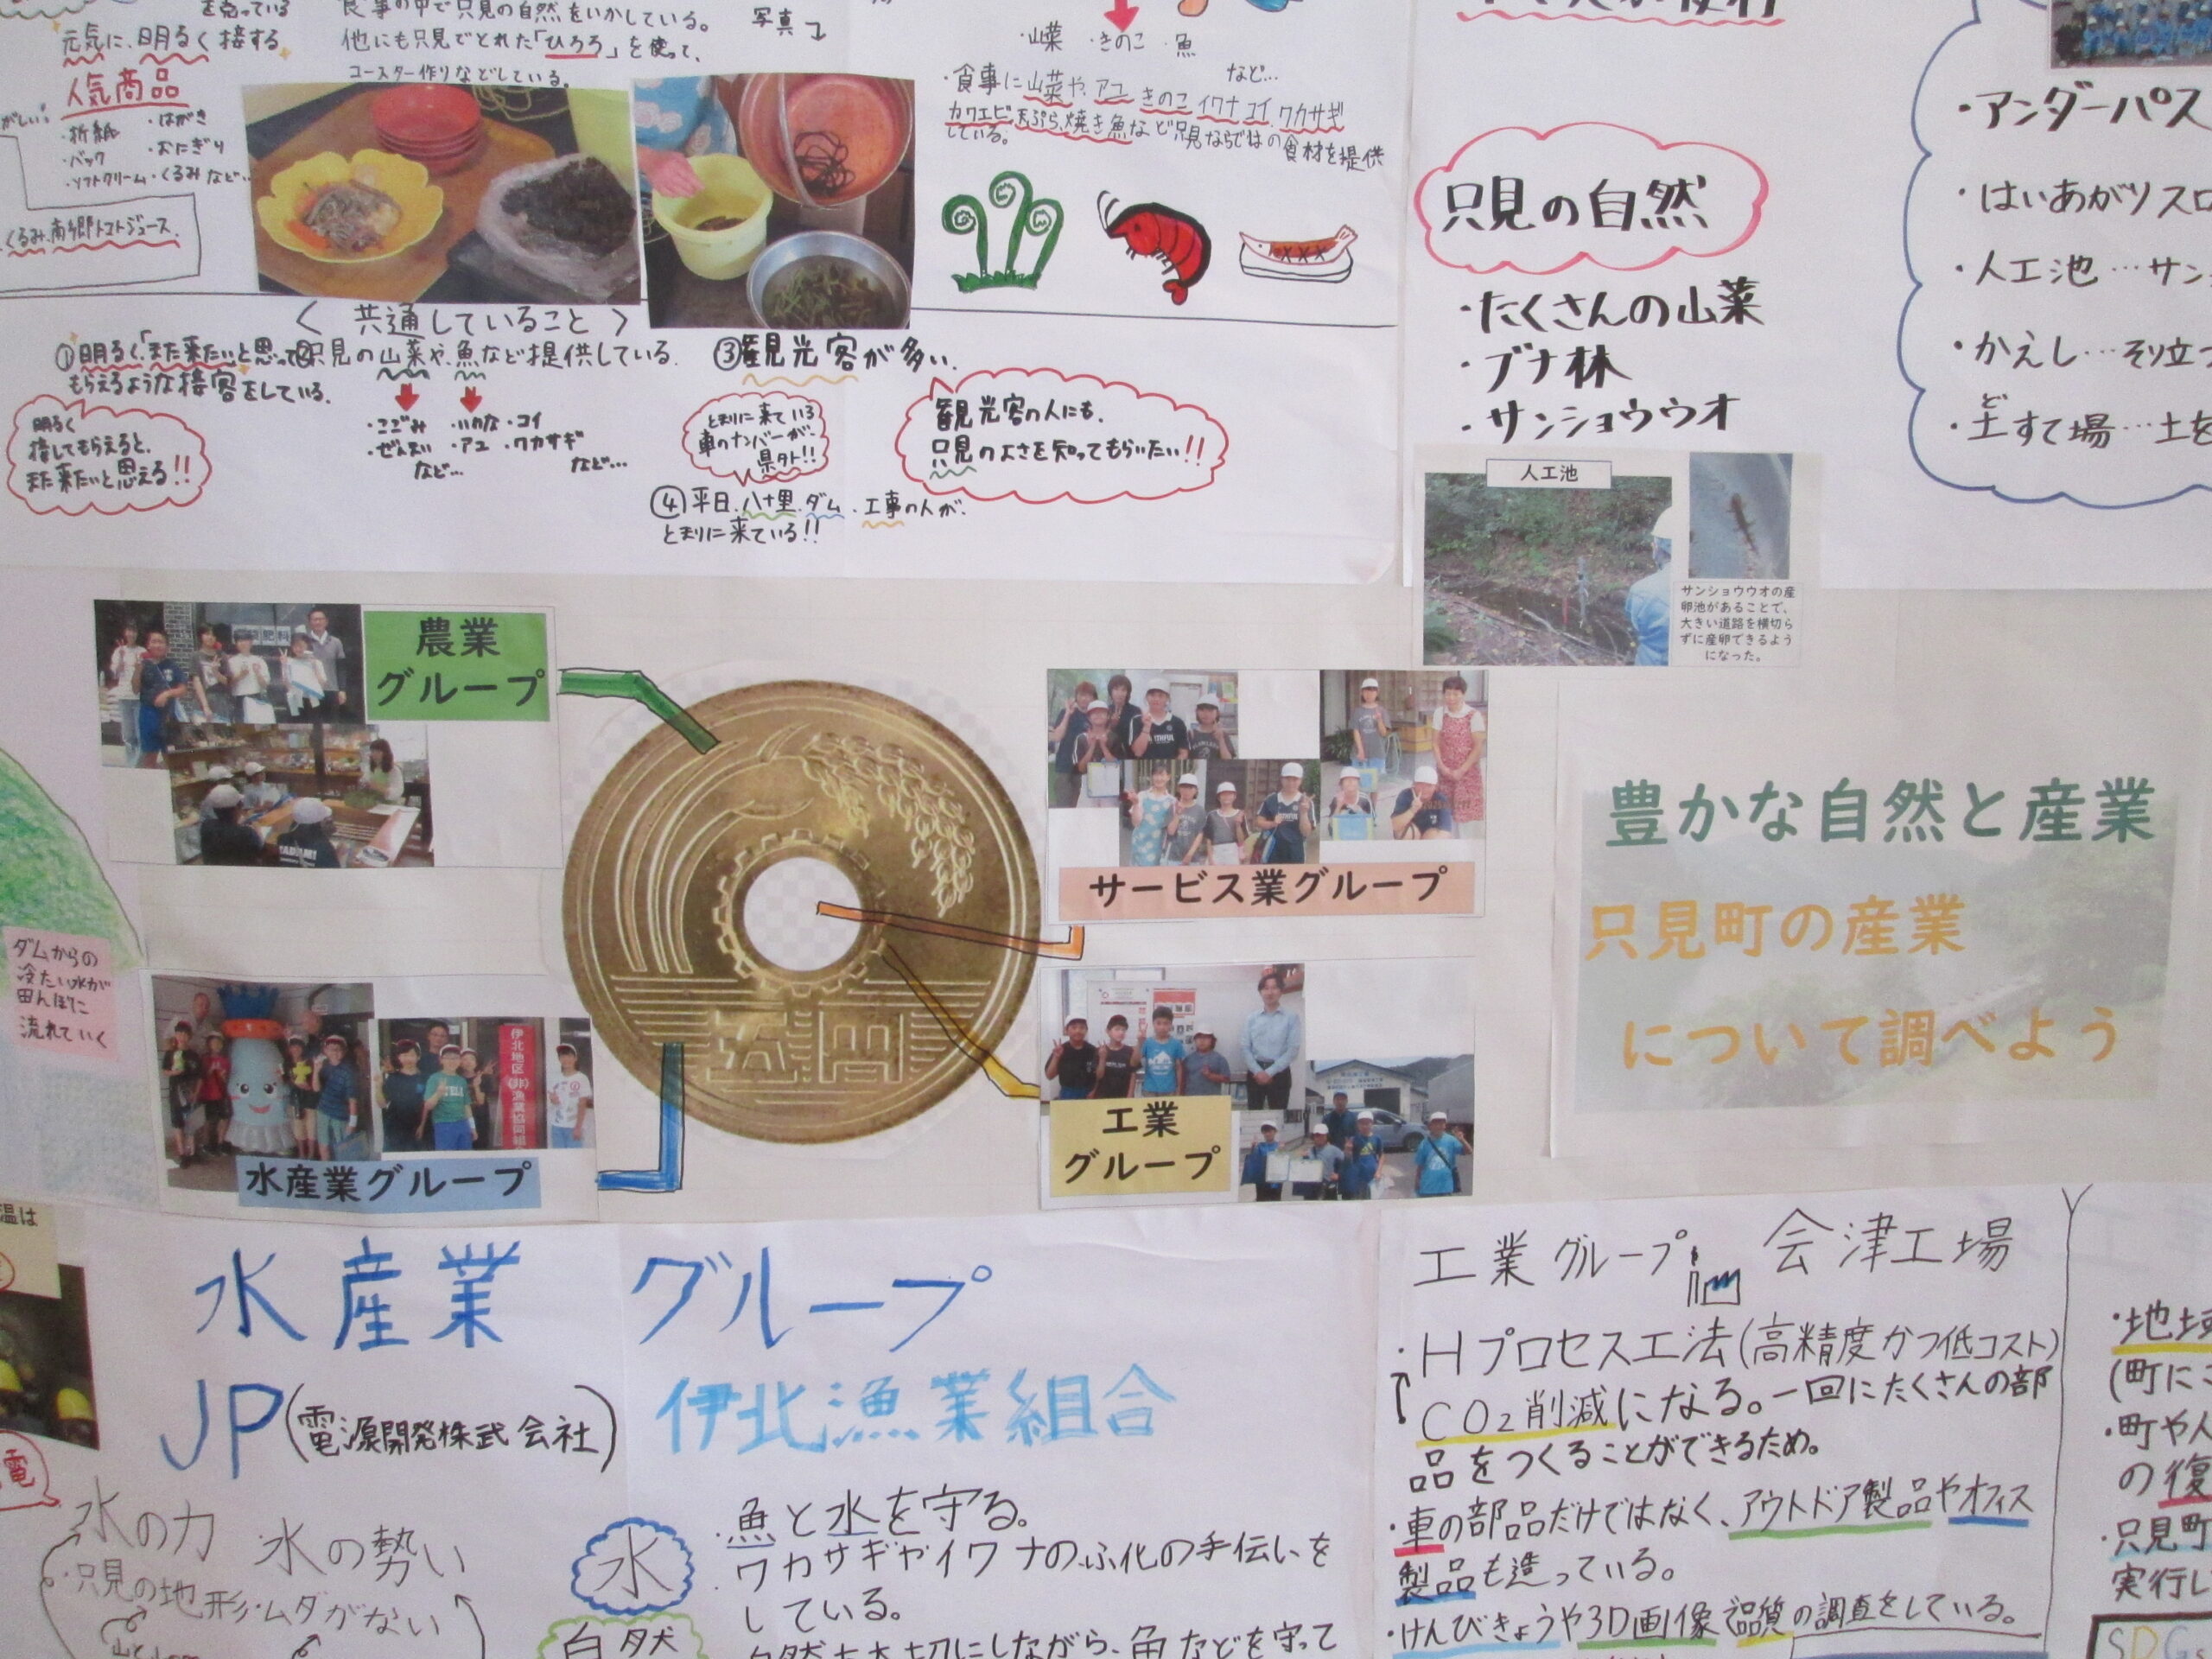 を売っている
元気に、明るく接する
人気商品
・折紙 ・はがき
・バック ・おにぎり
・ソフトクリーム ・くるみ など…
くるみ、南郷トマトジュース
食事の中で只見の自然をいかしている。
他にも只見でとれた「ひろろ」を使って、
コースター作りなどしている。
写真
・山菜 ・きのこ ・魚
など…
・食事に山菜や、アユ きのこ イワナ コイ、ワカサギ
カワエビ、天ぷら、焼き魚など只見ならではの食材を提供
している。
<共通していること>
①明るく「また来たい」と思って
もらえるような接客をしている。
明るく
接してもらえると、
また来たいと思える!!
②只見の山菜や、魚など提供している。
・こごみ
・ぜんまい
など…
・いわな ・コイ
・アユ ・ワカサギ
など…
③観光客が多い。
とまりに来ている
車のナンバーが
県外!!
観光客の人にも、
只見のよさを知ってもらいたい!!
④平日、八十里、ダム、工事の人が、
とまりに来ている!!
只見の自然
・たくさんの山菜
・ブナ林
・サンショウウオ
人工池
サンショウウオの産
卵池があることで、
大きい道路を横切ら
ずに産卵できるよう
になった。
・アンダーパス
・はいあがりスロ
・人工池…サン
・かえし…そり立つ
・土すて場…土を
ど
農業
グループ
サービス業グループ
水産業グループ
工業
グループ
五円
伊北地区(非)漁業協同組
ダムからの
冷たい水が
田んぼに
流れていく
豊かな自然と産業
只見町の産業
について調べよう
温は
電
水産業 グループ
JP(電源開発株式会社)
伊北漁業組合
水の力 水の勢い
・只見の地形・ムダがない
水
自然
・魚と水を守る。
・ワカサギやイワナのふ化の手伝いを
している。
自然を大切にしながら、魚などを守って
工業グループ 会津工場
・Hプロセス工法(高精度かつ低コスト)
CO2削減になる。一回にたくさんの部
品をつくることができるため。
・車の部品だけではなく、アウトドア製品やオフィス
製品も造っている。
・けんびきょうや3D画像で品質の調査をしている。
・地域
(町にこ
・町や人
の復
・只見町
実行し
SDGs